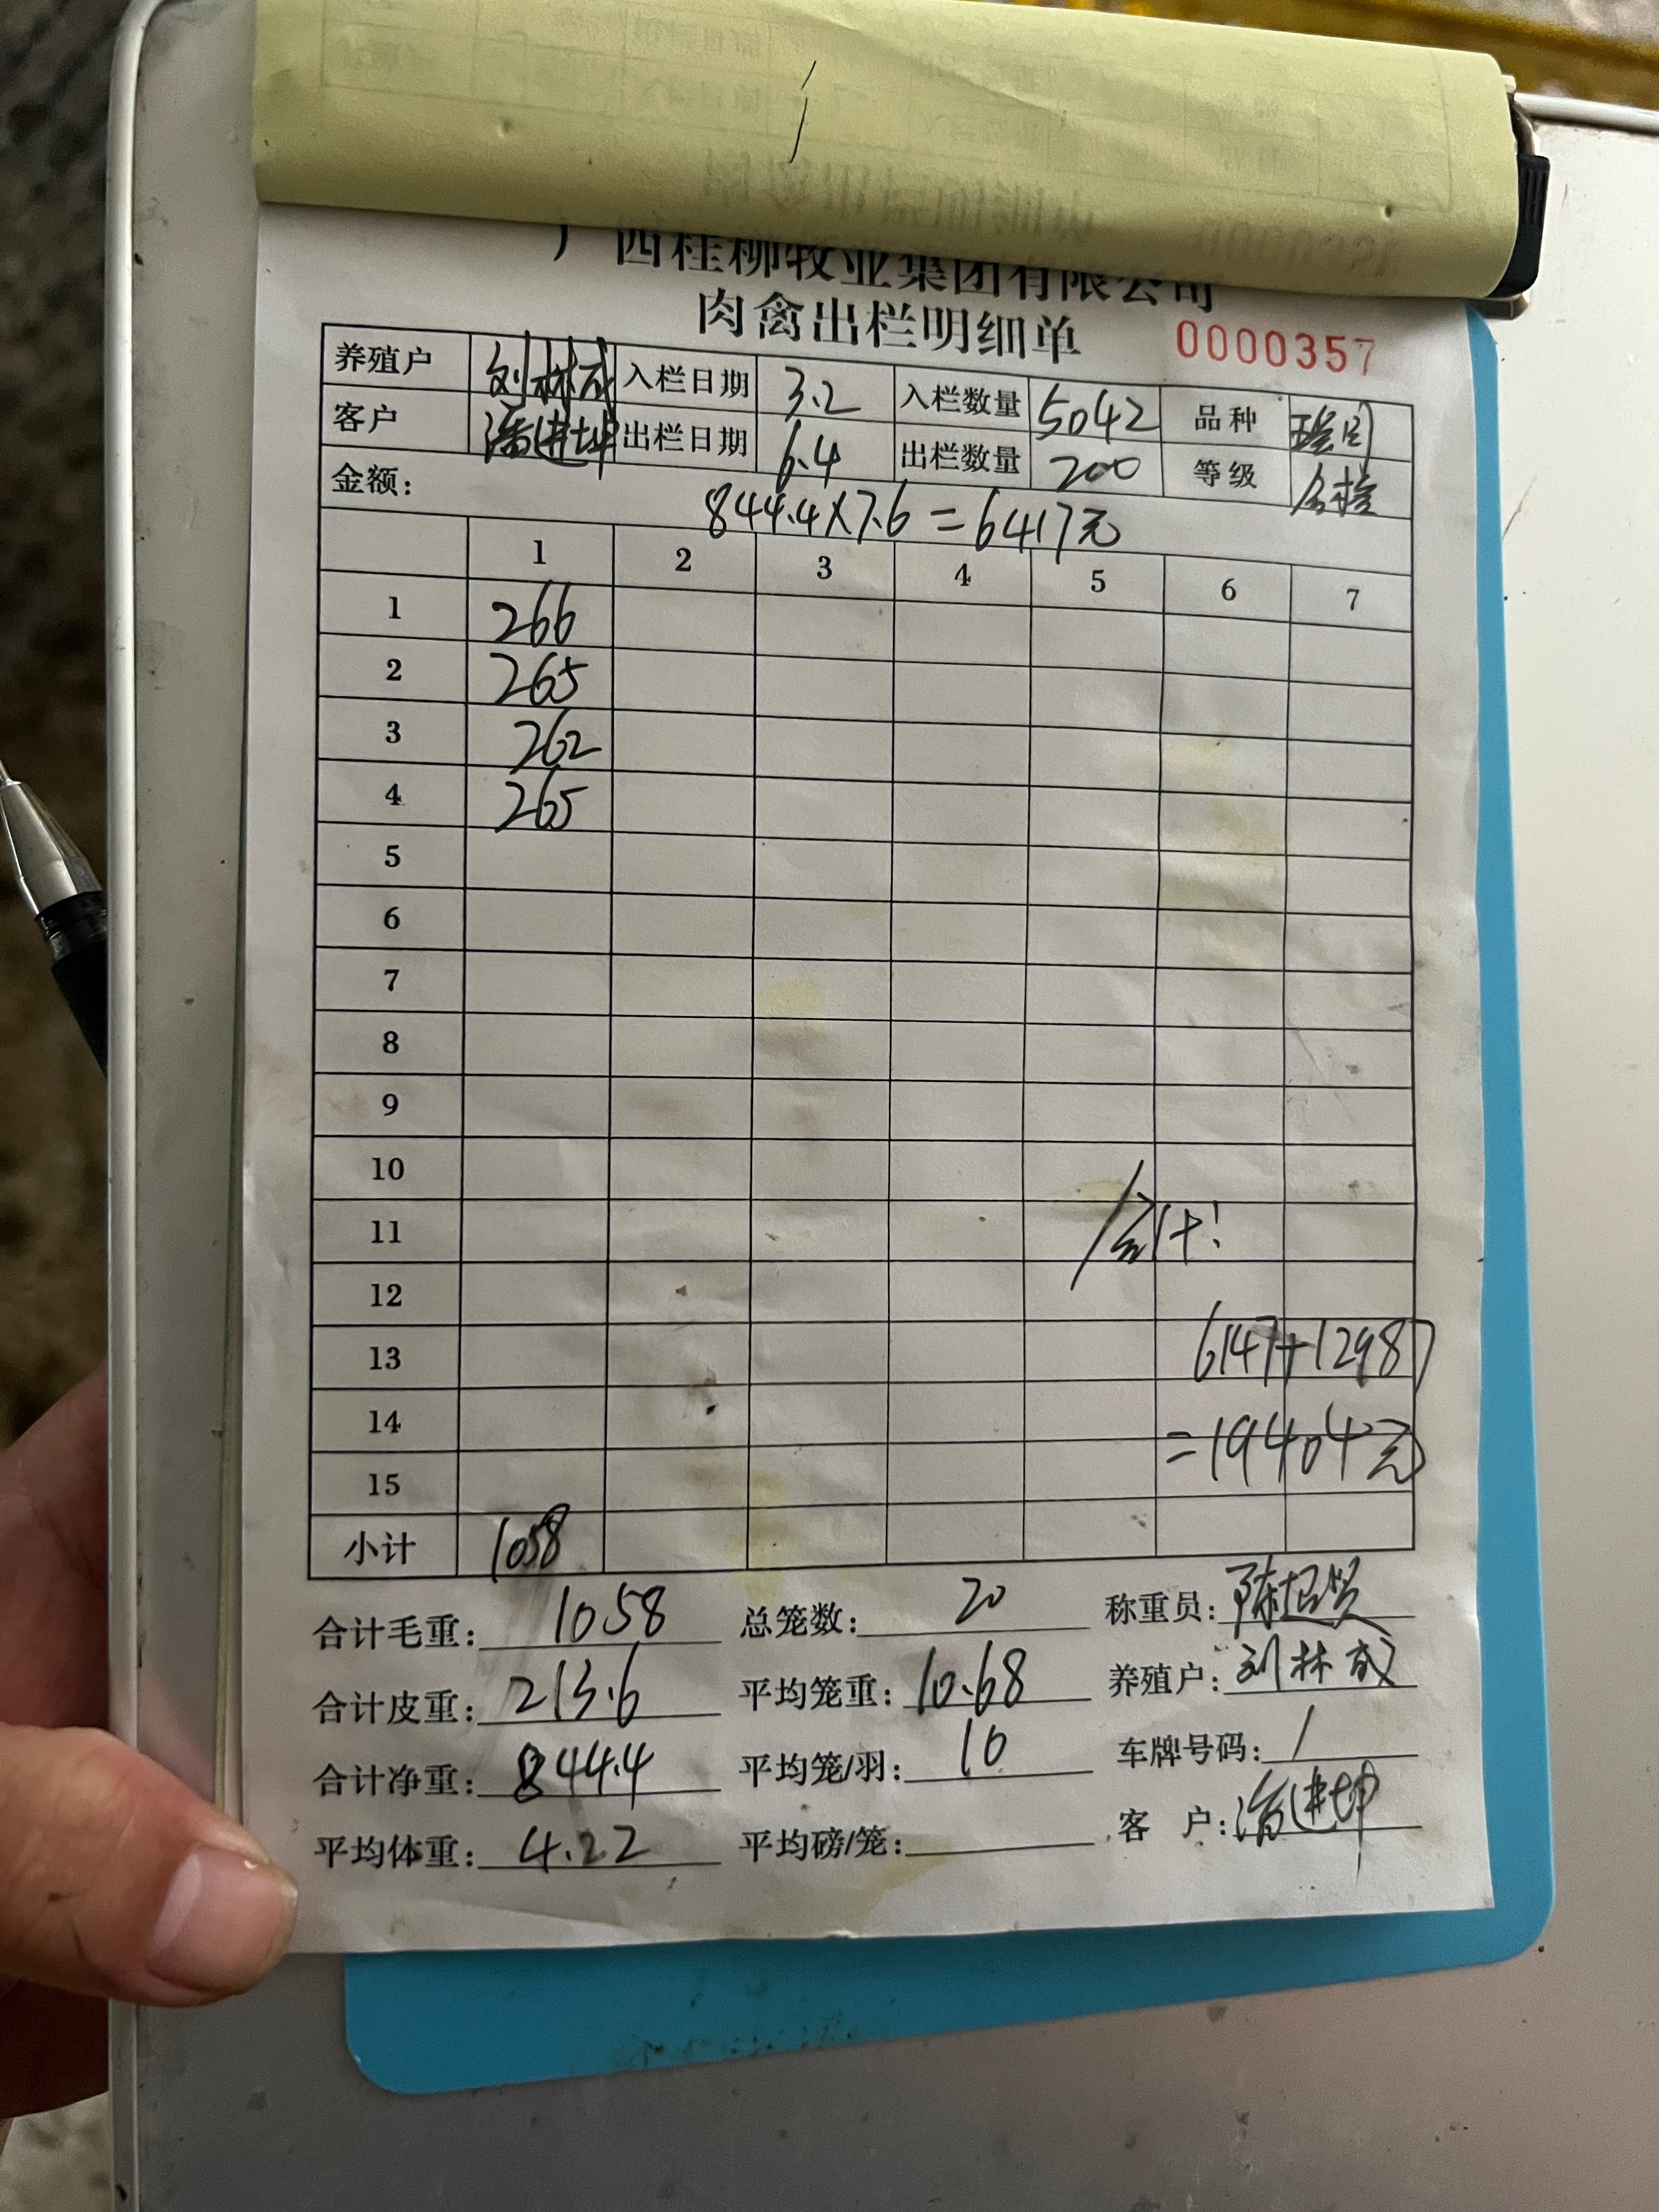 广西桂柳牧业集团有限公司
肉禽出栏明细单 0000357
养殖户 刘林成 入栏日期 3.2 入栏数量 5042 品种
客户 潘进坤 出栏日期 6.4 出栏数量 200 等级 合格
金额: 844.4×7.6=6417元
1 2 3 4 5 6 7
1 266
2 265
3 262
4 265
5
6
7
8
9
10
11 合计:
12
13 6147+12987
14 =19404元
15
小计 1058
合计毛重: 1058 总笼数: 20 称重员:
合计皮重: 213.6 平均笼重: 10.68 养殖户: 刘林成
合计净重: 844.4 平均笼/羽: 10 车牌号码: /
平均体重: 4.22 平均磅/笼: 客 户: 潘进坤